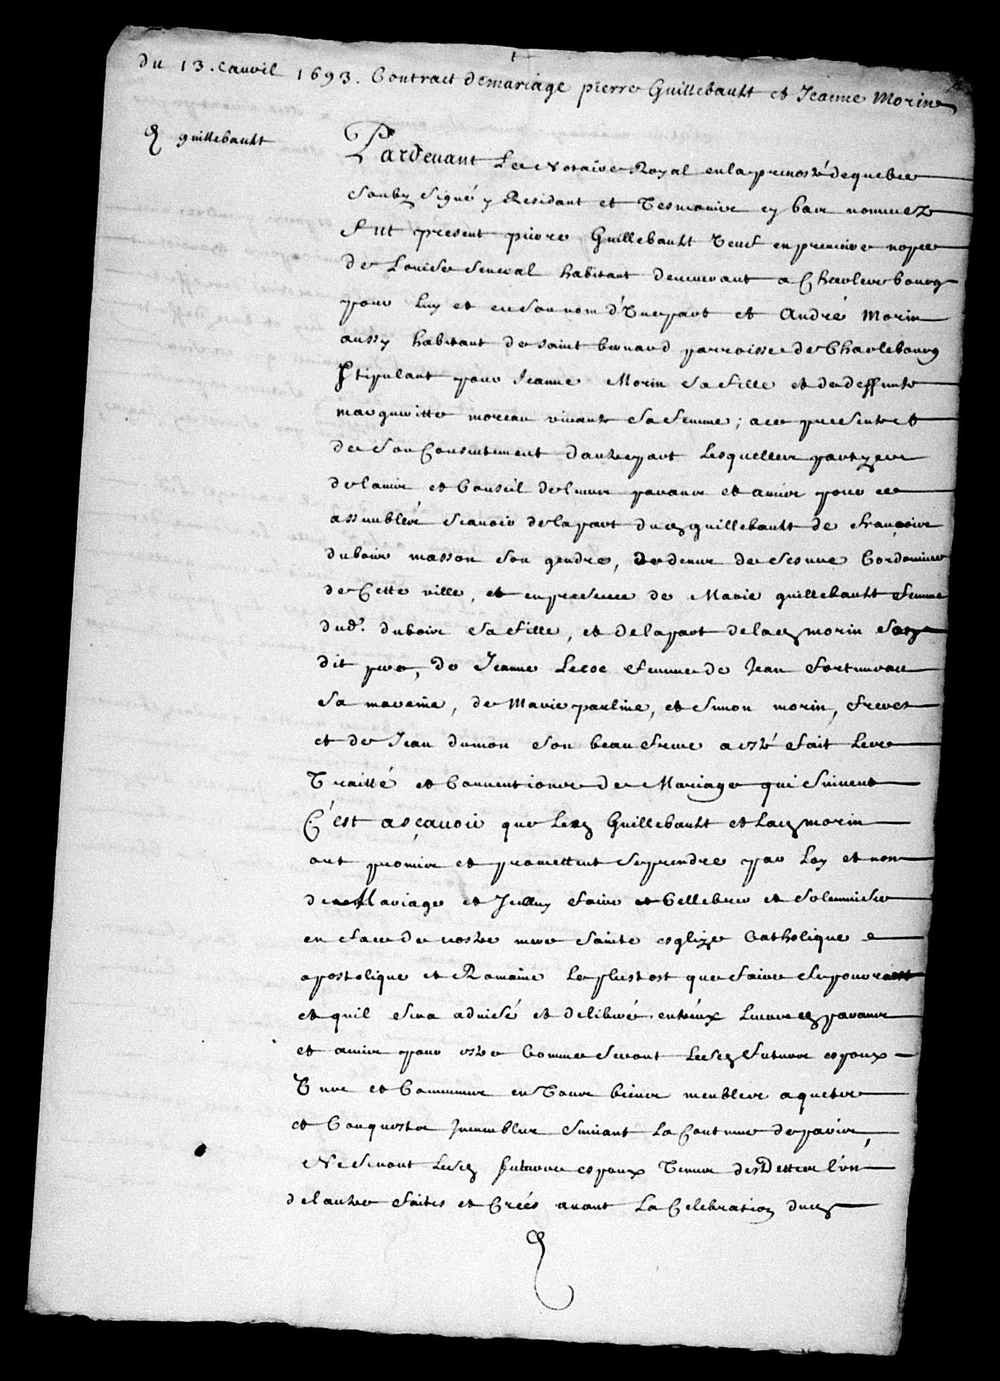 du 13. e auvil 1693. Contract de mariage pierre Guillebault et Jeanne Morin
guillebault
Pardevant Le Notaire Royal en la prevosté de quebec
soubz signé y Residant et Tesmoins cy bas nommez
fut present pierre Guillebault veuf en premiere nopce
de Louise Senecal habitant demeurant a Charlesbourg
pour luy et en son nom d'Une part et André Morin
aussy habitant de saint bernard parroisse de Charlebourg
stipulant pour Jeanne Morin sa fille et de deffunte
margueritte moreau vivante sa femme; a ce presente et
de son Consentement d'autre part Lesquelles partyes
de l'avis et Conseil de leurs parans et amis pour ce
assemblés scavoir de la part dud guillebault de françois
dubois masson son gendre, de denis de Cordonnier
de Cette ville, et en presence de Marie guillebault femme
dud. dubois sa fille, et de la part de lad morin sond
dit pere, de Jeanne Lecoc femme de Jean
sa maraine, de Marie et Simon morin, freres
et de Jean dumon son beau frere a esté fait Les
Traitté et Conventions de Mariage qui suivent
C'est ascavoir que Lesd Guillebault et Lad morin
ont promis et promettent se prendre par Loy et nom
de Mariage et Jcelluy faire et Cellebrer et solemniser
en face de nostre mere sainte esglize Catholique
apostolique et Romaine Le plustost que faire se pourra
et quil sera advisé et deliberé entr'eux Leursd parans
et amis pour estre Comme seront Lesd futurs espoux
Uns et Communs en Tous biens meubles aquets
et Conquests Jmmeubles suivant La Coutume de paris,
Ne seront Lesd futurs espoux Tenus des Dettes l'un
de l'autre faites et Créés avant La Celebration dud